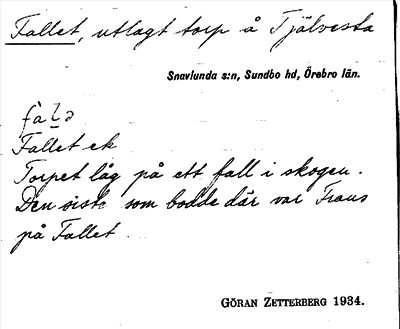 Fallet, utlagt torp å Tjälvesta
Snavlunda s:n, Sundbo hd, Örebro län.
Fallet ek
Torpet låg på ett fall i skogen.
Den siste som bodde där var Frans
på Fallet.
GÖRAN ZETTERBERG 1934.